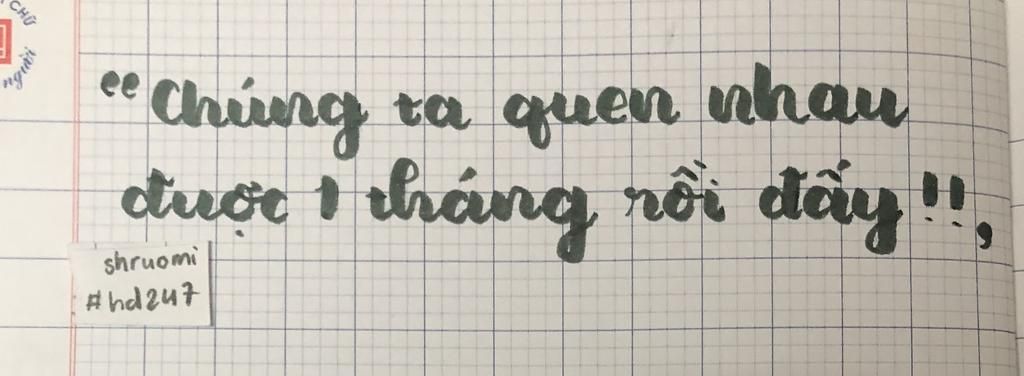 CHỮ
người
“Chúng ta quen nhau
được 1 tháng rồi đấy!!,
shruomi
#hd247